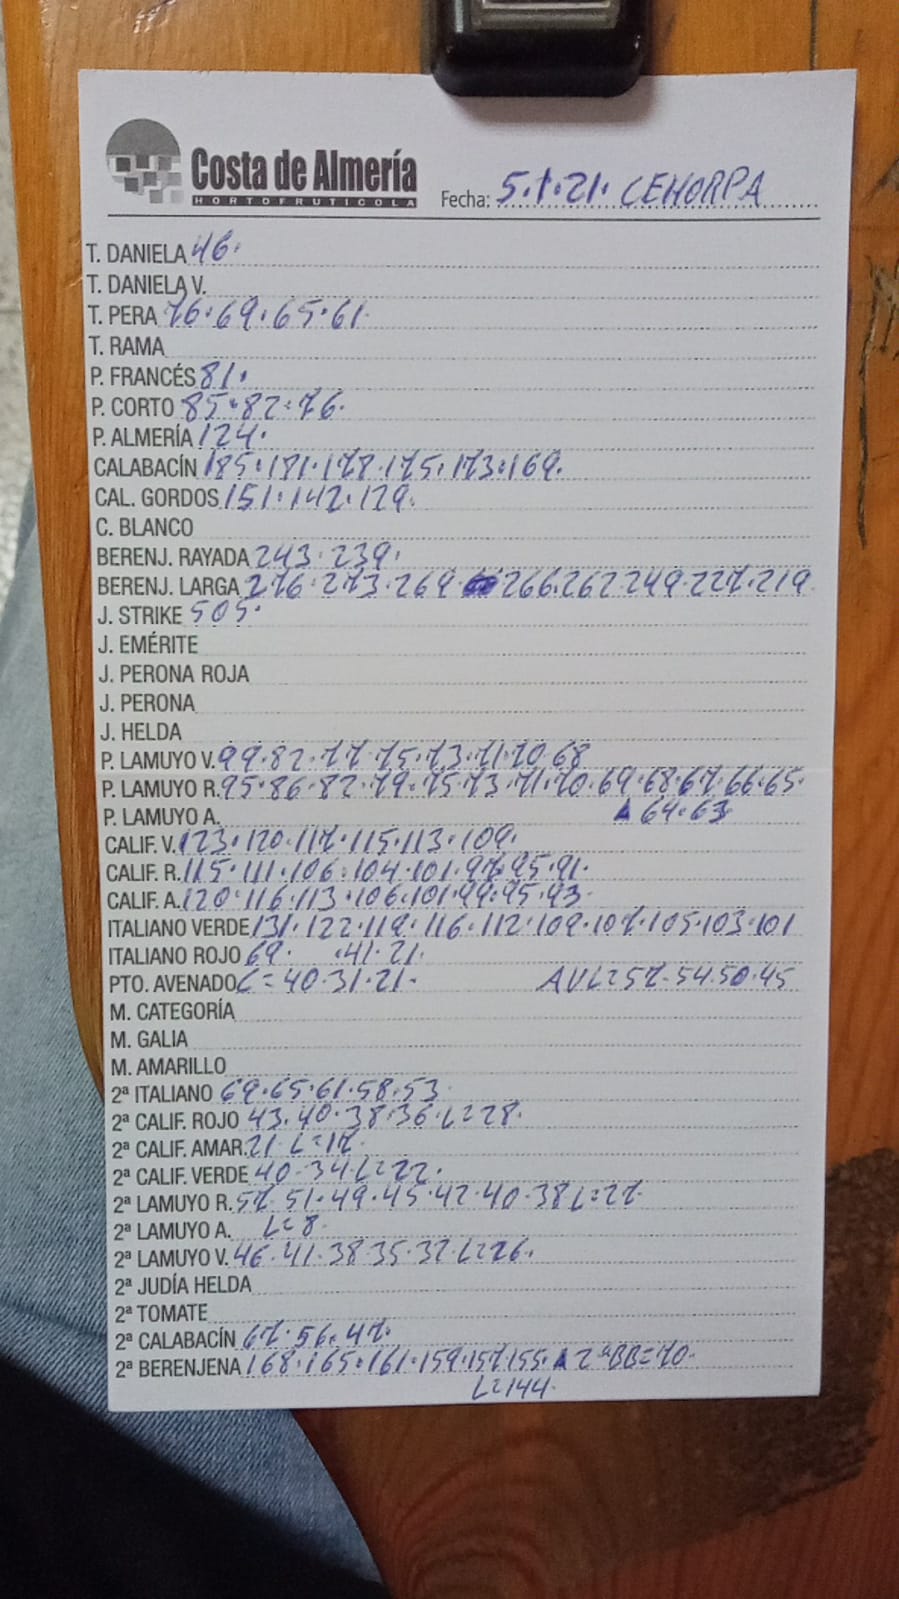 Costa de Almería
HORTOFRUTICOLA
Fecha: 5.1.21. CEHORPA
T. DANIELA 46.
T. DANIELA V.
T. PERA 76.69.65.61.
T. RAMA
P. FRANCÉS 81.
P. CORTO 85.82.76.
P. ALMERÍA 124.
CALABACÍN 185.181.178.175.173.169.
CAL. GORDOS 151.142.129.
C. BLANCO
BERENJ. RAYADA 243.239.
BERENJ. LARGA 276.273.269.266.262.249.227.219
J. STRIKE 505.
J. EMÉRITE
J. PERONA ROJA
J. PERONA
J. HELDA
P. LAMUYO V. 99.82.77.75.73.71.70.68
P. LAMUYO R. 95.86.82.79.75.73.71.70.69.68.67.66.65.
P. LAMUYO A. 64.63
CALIF. V. 123.120.117.115.113.109.
CALIF. R. 115.111.106.104.101.97.95.91.
CALIF. A. 120.116.113.106.101.99.95.93.
ITALIANO VERDE 131.122.119.116.112.109.107.105.103.101
ITALIANO ROJO 69. .41.21.
PTO. AVENADO L=40.31.21. AVL=57.54.50.45
M. CATEGORÍA
M. GALIA
M. AMARILLO
2ª ITALIANO 69.65.61.58.53.
2ª CALIF. ROJO 43.40.38.36.L=28.
2ª CALIF. AMAR. 21 L=17.
2ª CALIF. VERDE 40.34.L=22.
2ª LAMUYO R. 57.51.49.45.42.40.38 L=27.
2ª LAMUYO A. L=8.
2ª LAMUYO V. 46.41.38.35.32.L=26.
2ª JUDÍA HELDA
2ª TOMATE
2ª CALABACÍN 67.56.47.
2ª BERENJENA 168.165.161.159.157.155. 2ªBB=70.
L=144.